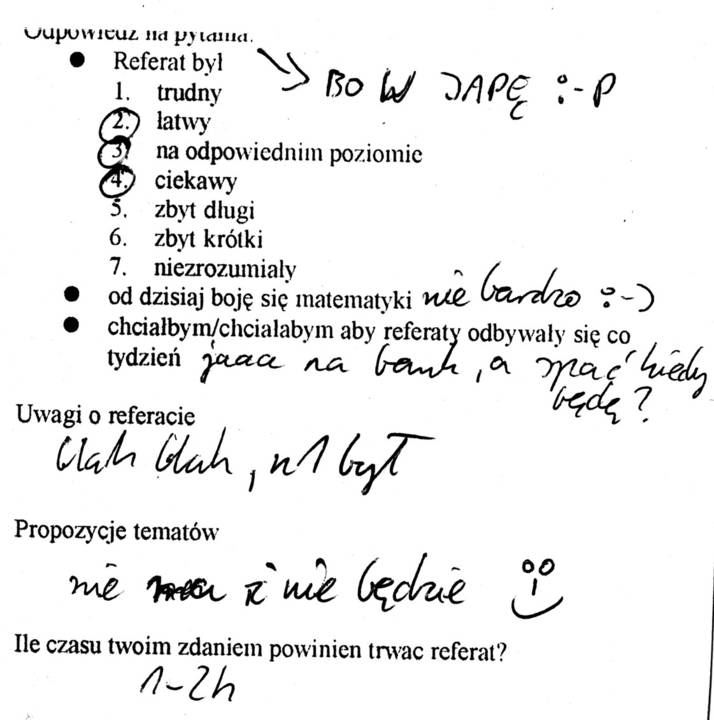 Odpowiedz na pytania.
● Referat był BO W JAPĘ :-P
1. trudny
2. łatwy
3. na odpowiednim poziomie
4. ciekawy
5. zbyt długi
6. zbyt krótki
7. niezrozumiały
● od dzisiaj boję się matematyki nie bardzo :-)
● chciałbym/chciałabym aby referaty odbywały się co
tydzień jaaaa na bank, a spać kiedy
będę?
Uwagi o referacie
blah blah, n1 był
Propozycje tematów
nie i nie będzie
Ile czasu twoim zdaniem powinien trwac referat?
1-2h